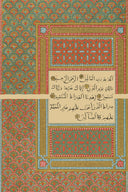 الحمد لله رب العالمين الرحمن الرحيم
مالك يوم الدين إياك نعبد وإياك
نستعين اهدنا الصراط المستقيم
صراط الذين أنعمت عليهم غير المغضوب
عليهم ولا الضالين